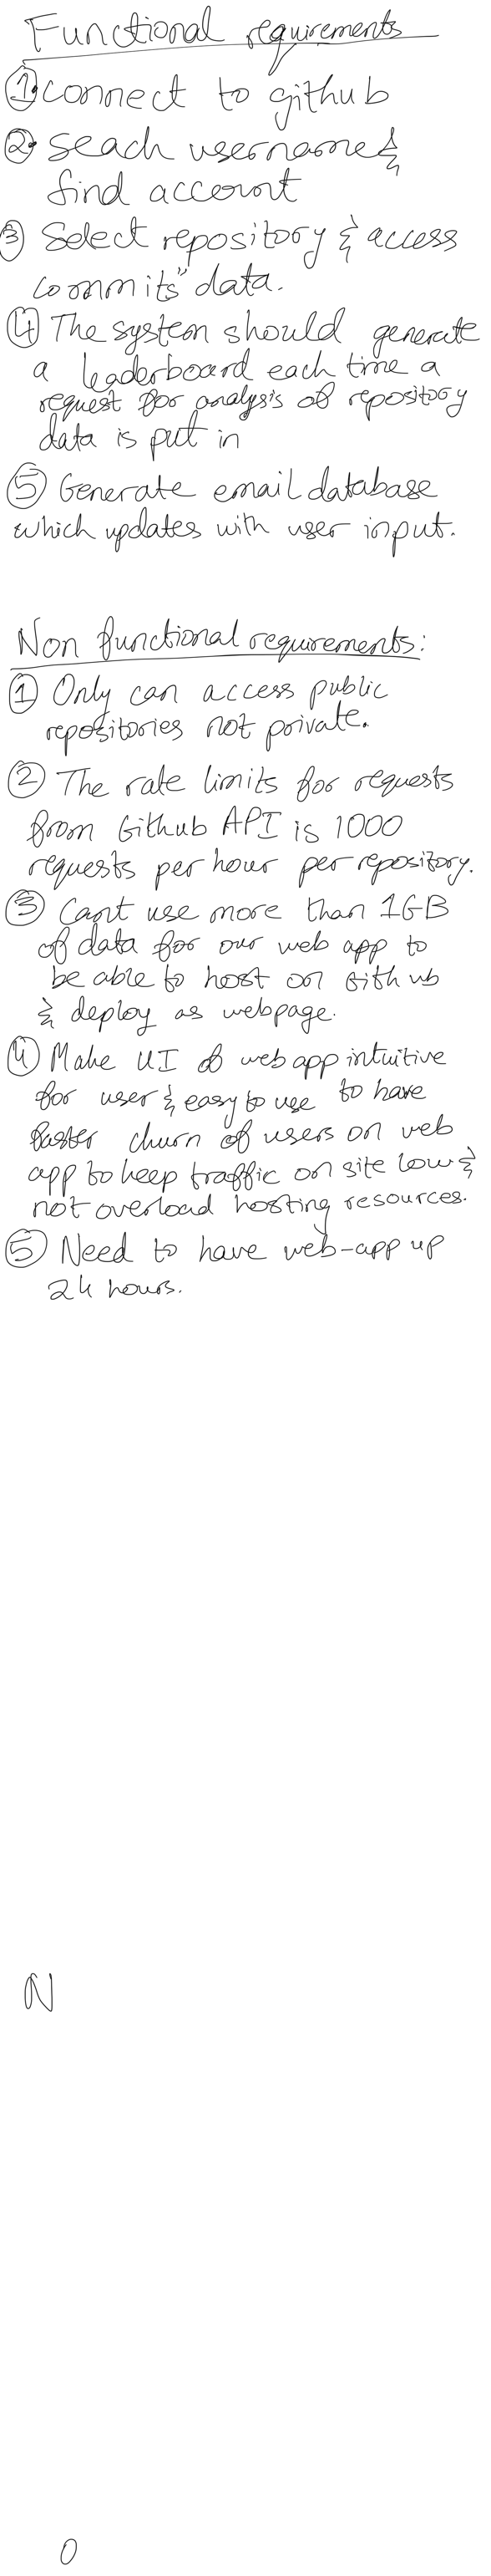 Functional requirements
① connect to github
② seach username &
find account
③ Select repository & access
commits" data.
④ The system should generate
a leaderboard each time a
request for analysis of repository
data is put in
⑤ Generate email database
which updates with user input.
Non functional requirements:
① Only can access public
repositories not private.
② The rate limits for requests
from Github API is 1000
requests per hour per repository.
③ Cant use more than 1GB
of data for our web app to
be able to host on Github
& deploy as webpage.
④ Make UI of web app intuitive
for user & easy to use to have
faster churn of users on web
app to keep traffic on site low &
not overload hosting resources.
⑤ Need to have web-app up
24 hours.
N
0